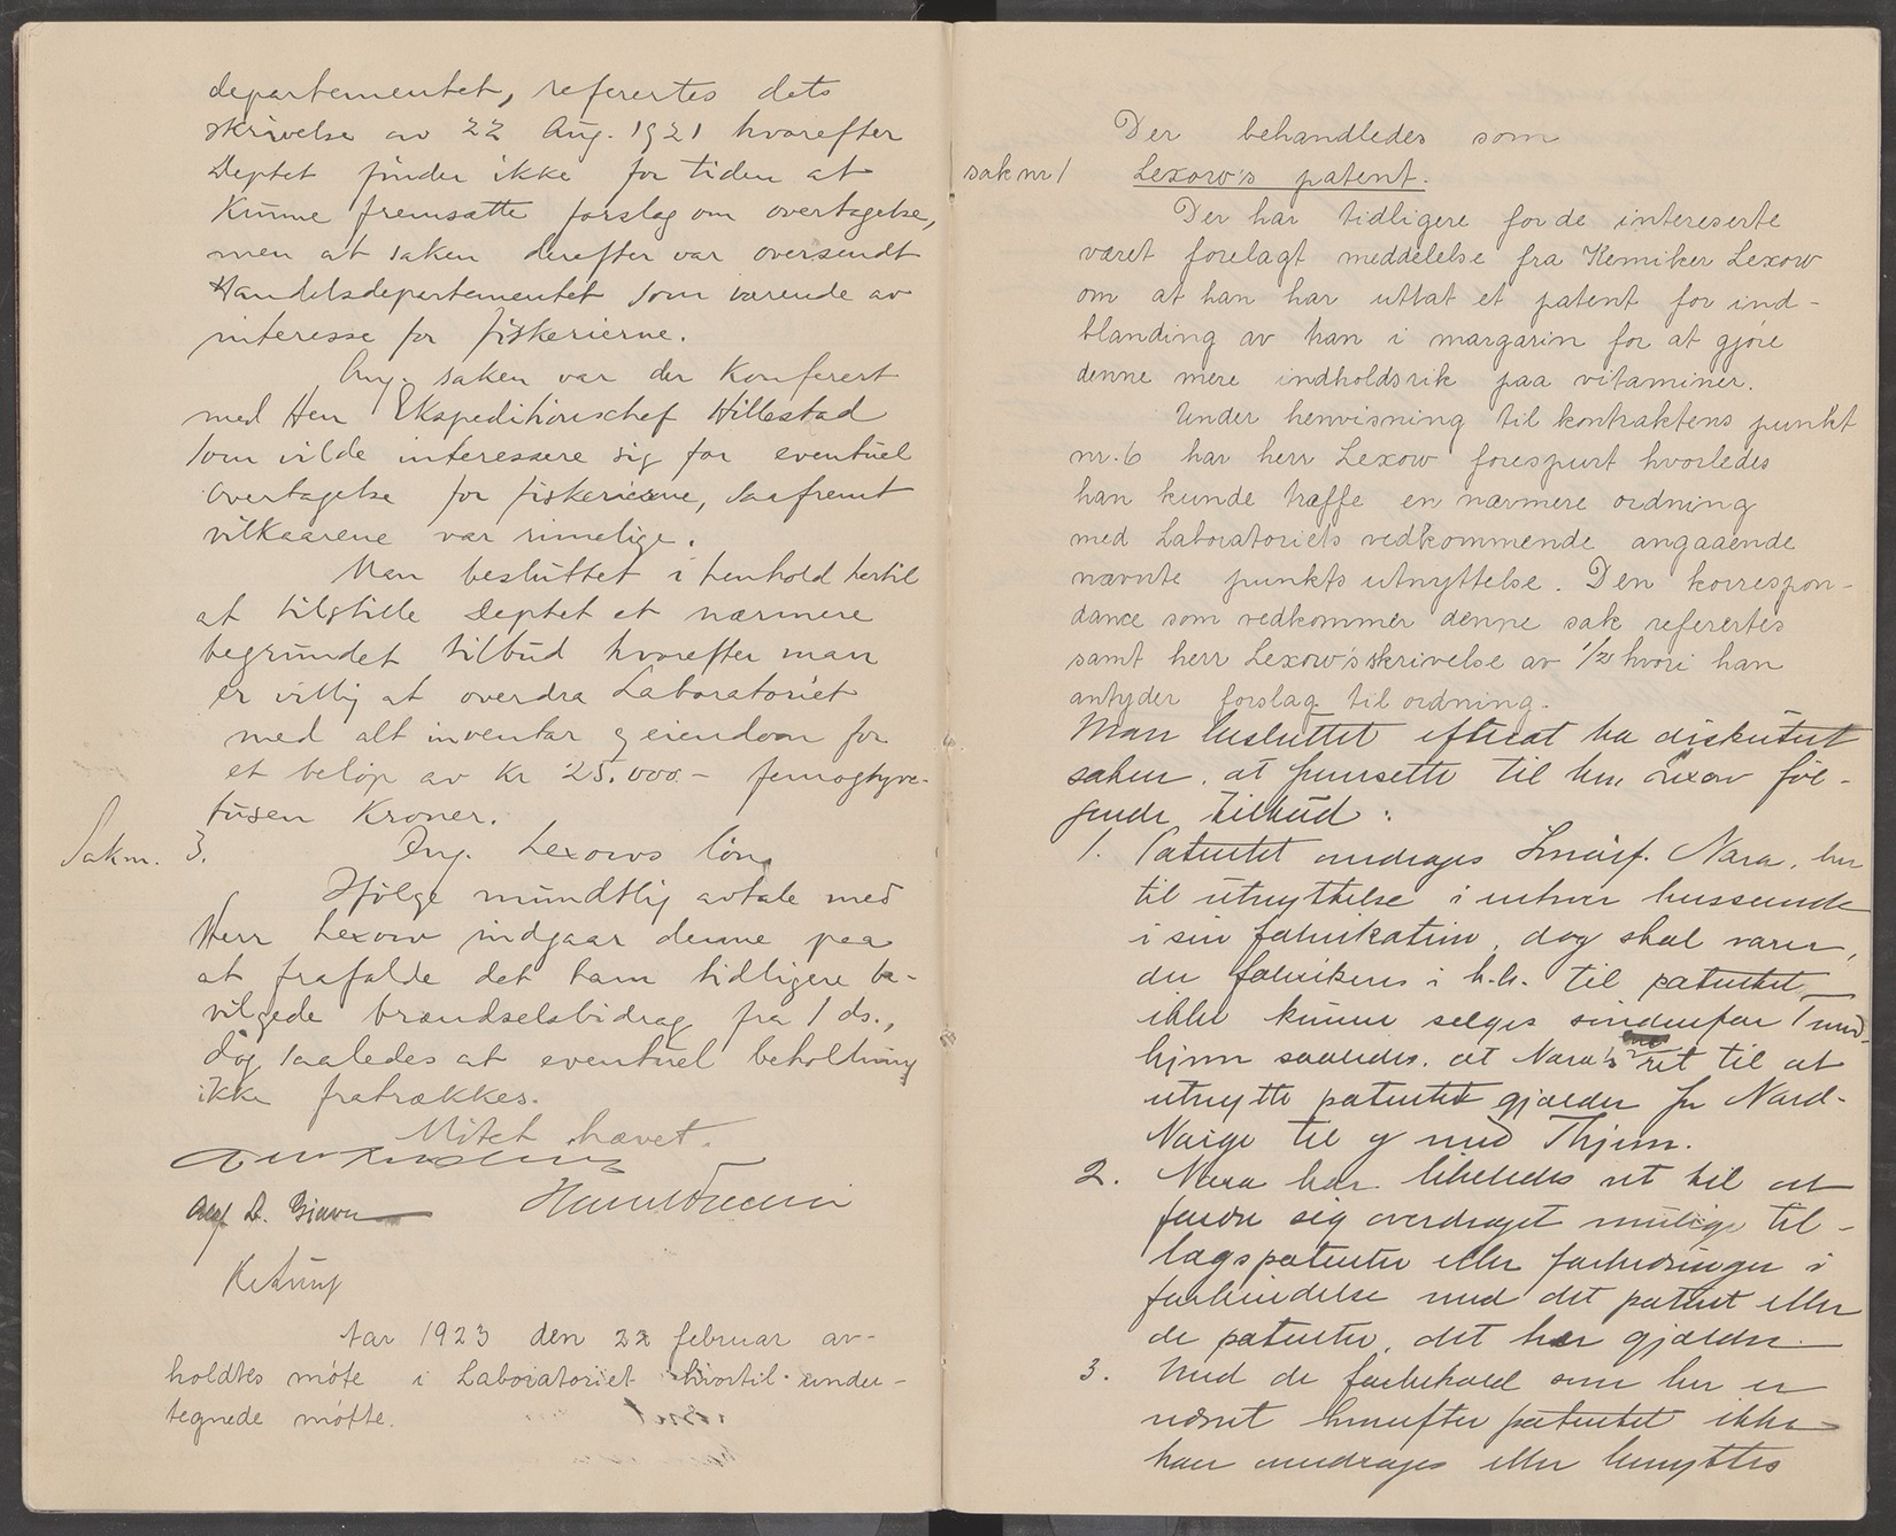 departementet, refereres dets
skrivelse av 22 Aug. 1921 hvorefter
Deptet finder ikke for tiden at
Kunne fremsætte forslag om overtagelse,
men at saken derefter var oversendt
Handelsdepartementet som værende av
interesse for fiskerierne.
Ang. saken var der Konferert
med Herr Ekspeditionschef Hillestad
som vilde interessere sig for eventuel
overtagelse for fiskerierne, saafremt
vilkaarene var rimelige.
Man besluttet i henhold hertil
at tilstille Deptet et nærmere
begrundet tilbud hvorefter man
er villig at overdra Laboratoriet
med alt inventar og eiendom for
et beløp av Kr 25.000.- femogtyve-
tusen Kroner.
Sak nr. 3. Ang. Lexows løn
Ifølge mundtlig avtale med
Herr Lexow indgaar denne paa
at frafalde det ham tidligere be-
vilgede brændselsbidrag fra 1 ds.,
dog saaledes at eventuel beholdning
ikke fratrækkes.
Møtet hævet.
Olaf D. Bjaver
Aar 1923 den 22 februar av-
holdtes møte i Laboratoriet hvortil under-
tegnede møtte.
Der behandledes som
sak nr 1 Lexow's patent.
Der har tidligere for de intereserte
været forelagt meddelelse fra Kemiker Lexow
om at han har uttat et patent for ind-
blanding av tran i margarin for at gjøre
denne mere indholdsrik paa vitaminer.
Under henvisning til kontraktens punkt
nr. 6 har herr Lexow forespurt hvorledes
han kunde træffe en nærmere ordning
med Laboratoriets vedkommende angaaende
nævnte punkts utnyttelse. Den korrespon-
dance som vedkommer denne sak refereres
samt herr Lexow's skrivelse av 1/2 hvori han
antyder forslag til ordning.
Man besluttet efterat ha diskutert
saken, at fremsette til hr. Lexow føl-
gende tilbud:
1. Patentet overdrages Smørf. Nora, her
til utnyttelse i enhver henseende
i sin fabrikation, dog skal varer,
der fabrikeres i h.h. til patentet
ikke kunne sælges søndenfor Trond-
hjem saaledes, at Nora's ret til at
utnytte patentet gjælder for Nord-
Norge til og med Thjem.
2. Nora har likeledes ret til at
fordre sig overdraget mulige til-
lægspatenter eller forbedringer i
forbindelse med det patent eller
de patenter, det her gjælder.
3. Med de forbehold som her er
nævnt hvorefter patentet ikke
kan overdrages eller benyttes